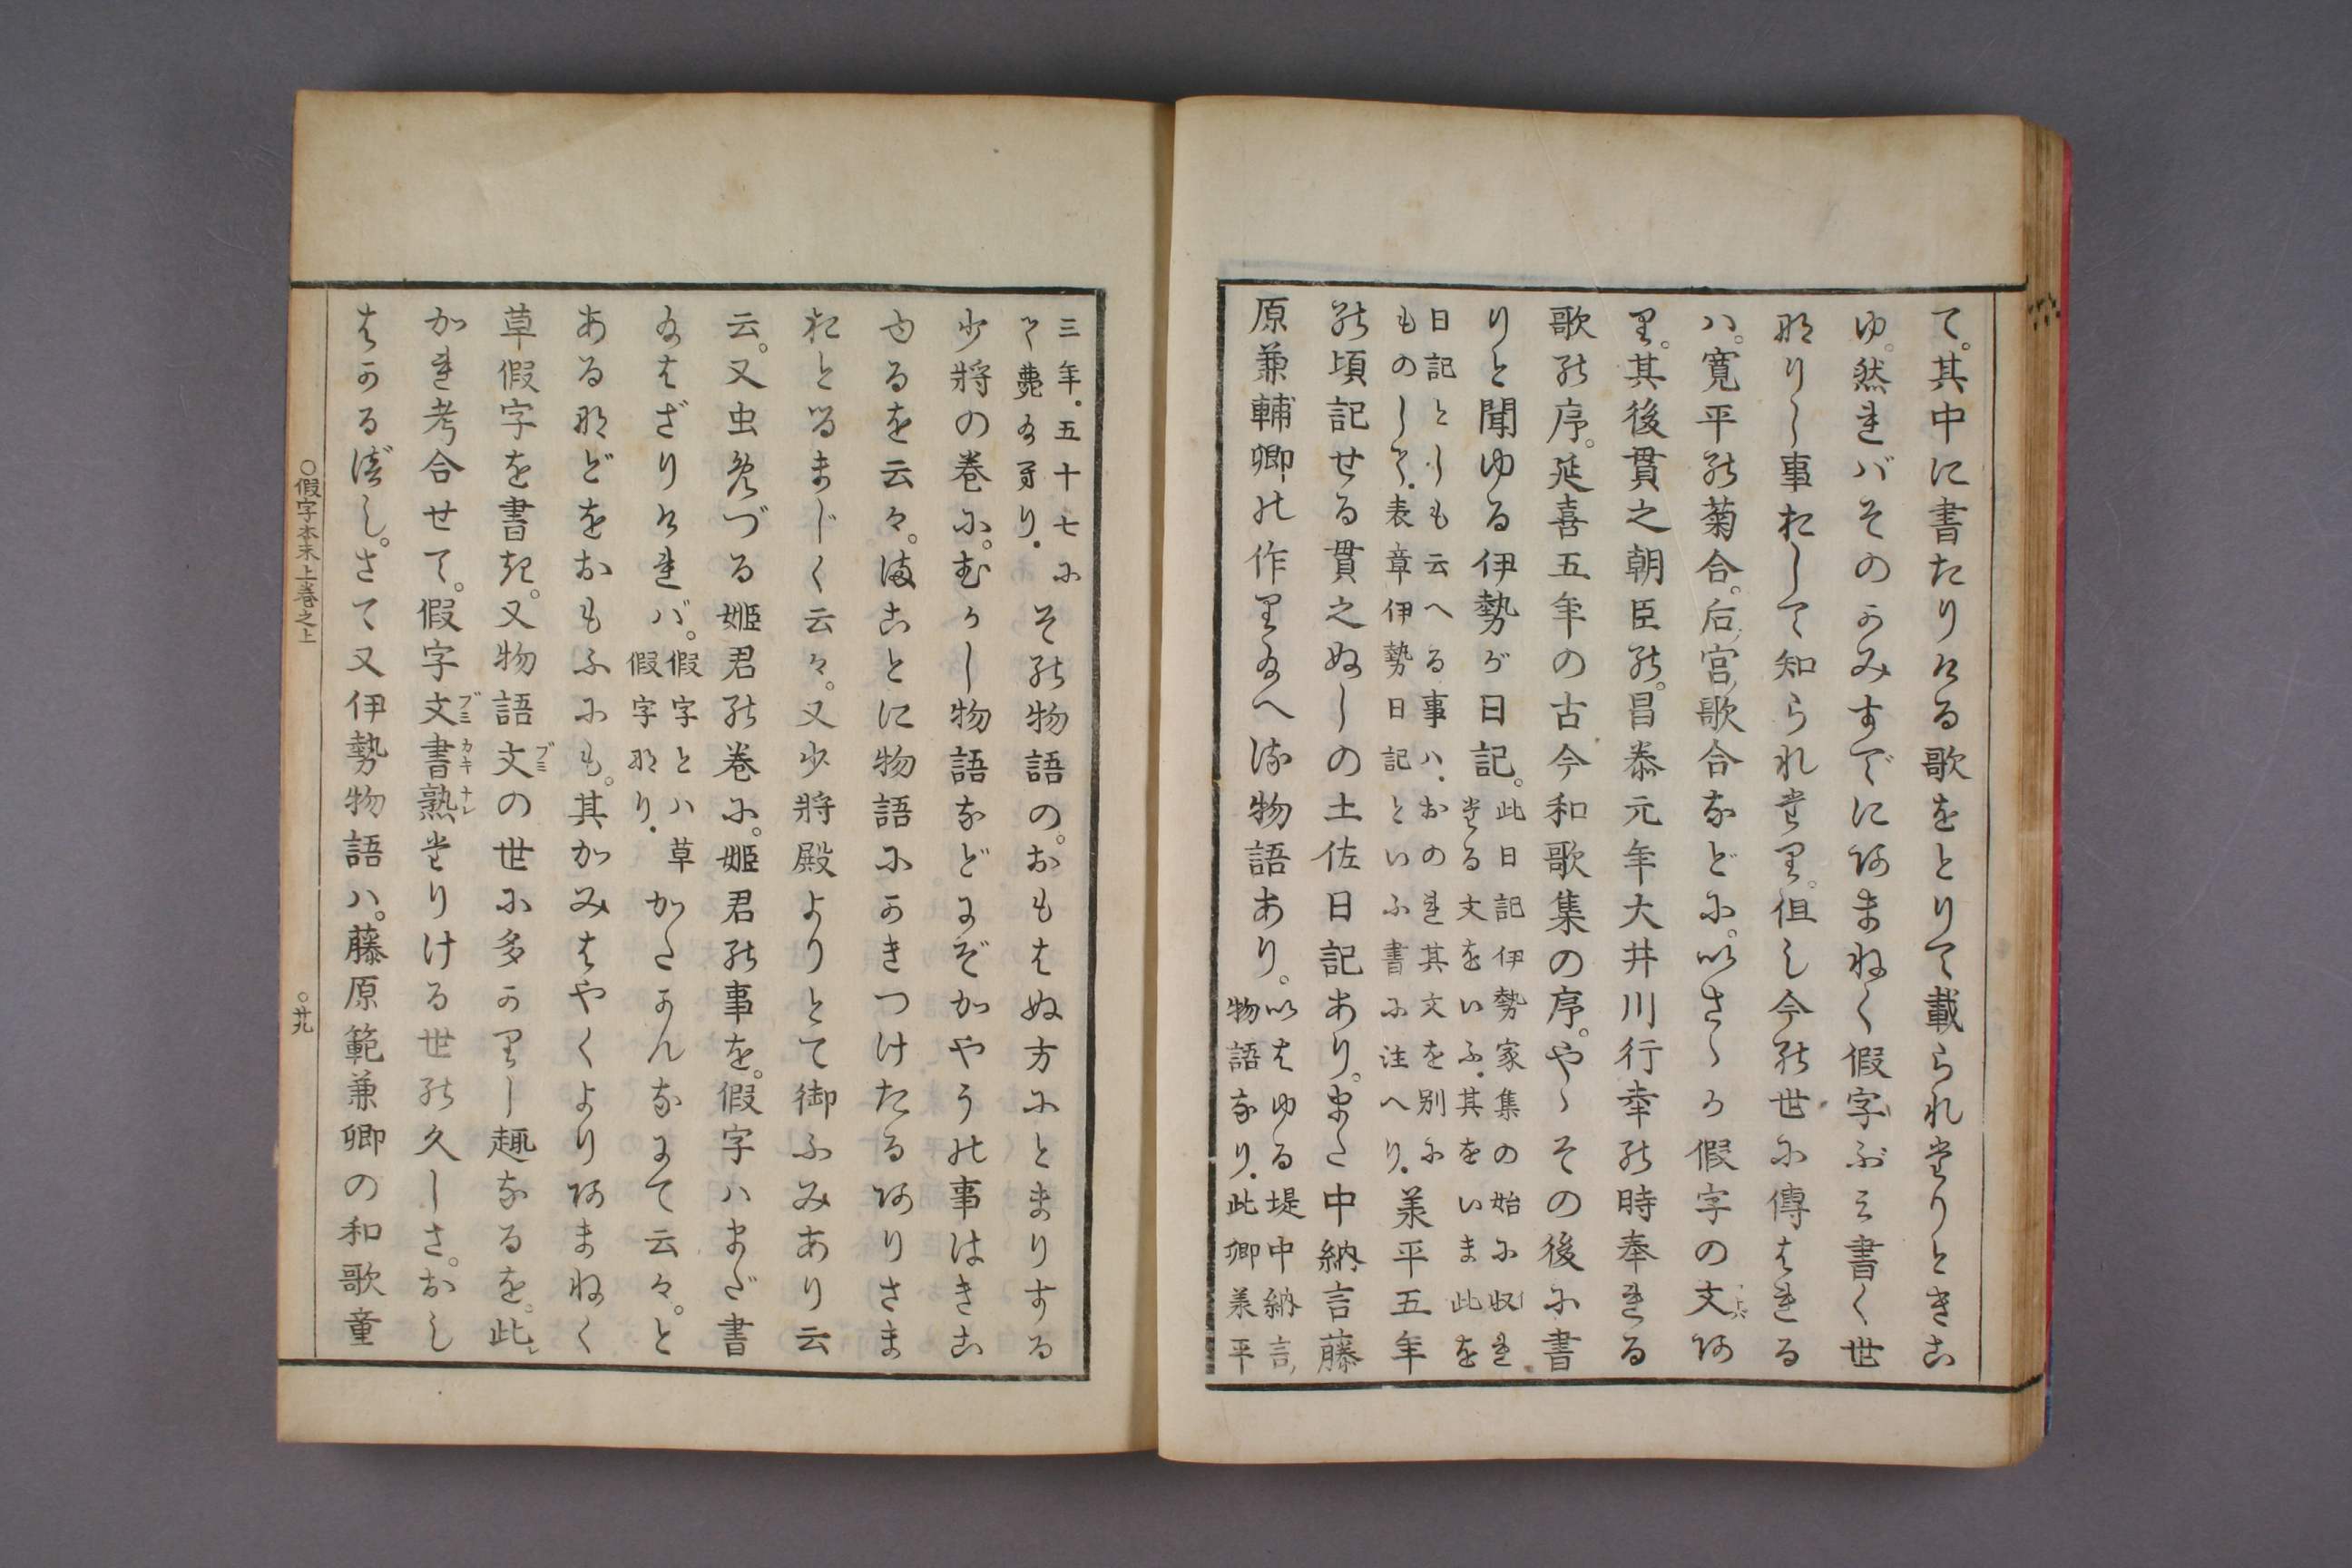 て。其中に書たりける歌をとりて載られたりときこ
ゆ。然れバそのかみすでにあまねく假字ぶミ書く世
なりし事おして知られたり。但し今の世に傳はれる
ハ。寛平の菊合。后ノ宮ノ歌合などに。いさゝか假字の文あ
り。其後貫之朝臣の。昌泰元年大井川行幸の時奉れる
歌の序。延喜五年の古今和歌集の序。やゝその後に書
りと聞ゆる伊勢が日記。此日記伊勢家集の始に収れ
たる文をいふ．其をいま此を
日記としも云へる事ハ．おのれ其文を別に
ものして．表章伊勢日記といふ書に注へり．承平五年
の頃記せる貫之ぬしの土佐日記あり。また中納言藤
原兼輔卿の作りたまへる物語あり。いはゆる堤中納言ノ
物語なり．此卿承平
三年．五十七に
て薨たまへり．その物語の。おもはぬ方にとまりする
少將の巻に。むかし物語などにぞかやうの事はきこ
ゆるを云々。まことに物語にかきつけたるありさま
おとるまじく云々。又少將殿よりとて御ふみあり云
云。又虫めづる姫君の巻に。姫君の事を。假字ハまだ書
たまはざりければ。假字とハ草
假字なり．かたかんなにて云々。と
あるなどをおもふにも。其かみはやくよりあまねく
草假字を書き。又物語文ブミの世に多かりし趣なるを。此レ
かれ考合せて。假字文ブミ書カキ熟ナレたりける世の久しさ。おし
はかるべし。さて又伊勢物語ハ。藤原範兼卿の和歌童
○假字本末上巻之上
○廿九